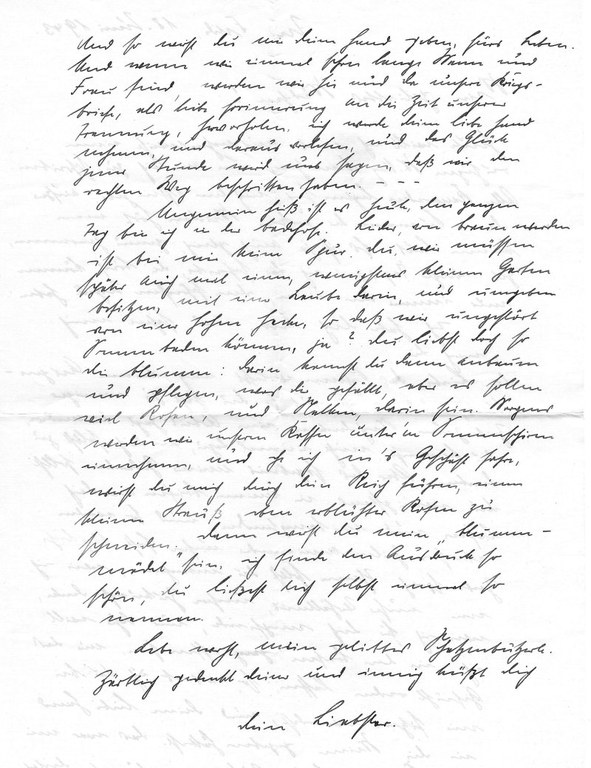 Und so wirst du mir deine Hand geben, fürs Leben.
Und wenn wir einmal schon lange Mann und
Frau sind, werden wir hie und da unsere Kriegs-
briefe, als liebe Erinnerung an die Zeit unserer
Trennung, hervorholen, ich werde deine liebe Hand
nehmen, und daraus vorlesen, und das Glück
jener Stunde wird uns sagen, daß wir den
rechten Weg beschritten haben. – – –
Ungemein heiß ist es heute, den ganzen
Tag bin ich in der Badehose. Leider, von braun werden
ist bei mir keine Spur. Du, wir müssen
später auch mal einen, wenigstens kleinen Garten
besitzen, mit einer Laube darin, und umgeben
von einer hohen Hecke, so daß wir ungestört
Sonnenbaden können, ja? Du liebst doch so
die Blumen: darin kannst du dann anbauen
und pflegen, was dir gefällt, aber es sollen
viel Rosen, und Nelken, darin sein. Morgens
werden wir unseren Kaffee unter'm Sonnenschirm
einnehmen, und eh ich in's Geschäft fahre,
wirst du mich durch dein Reich führen, einen
kleinen Strauß eben erblühter Rosen zu
schneiden. Dann wirst du mein „Blumen-
mädel" sein, ich finde den Ausdruck so
schön, du ließest dich selbst einmal so
nennen.
Lebe wohl, mein geliebtes Schatzenbutzerle.
Zärtlich gedenkt deiner und innig küßt dich
dein Liebster.